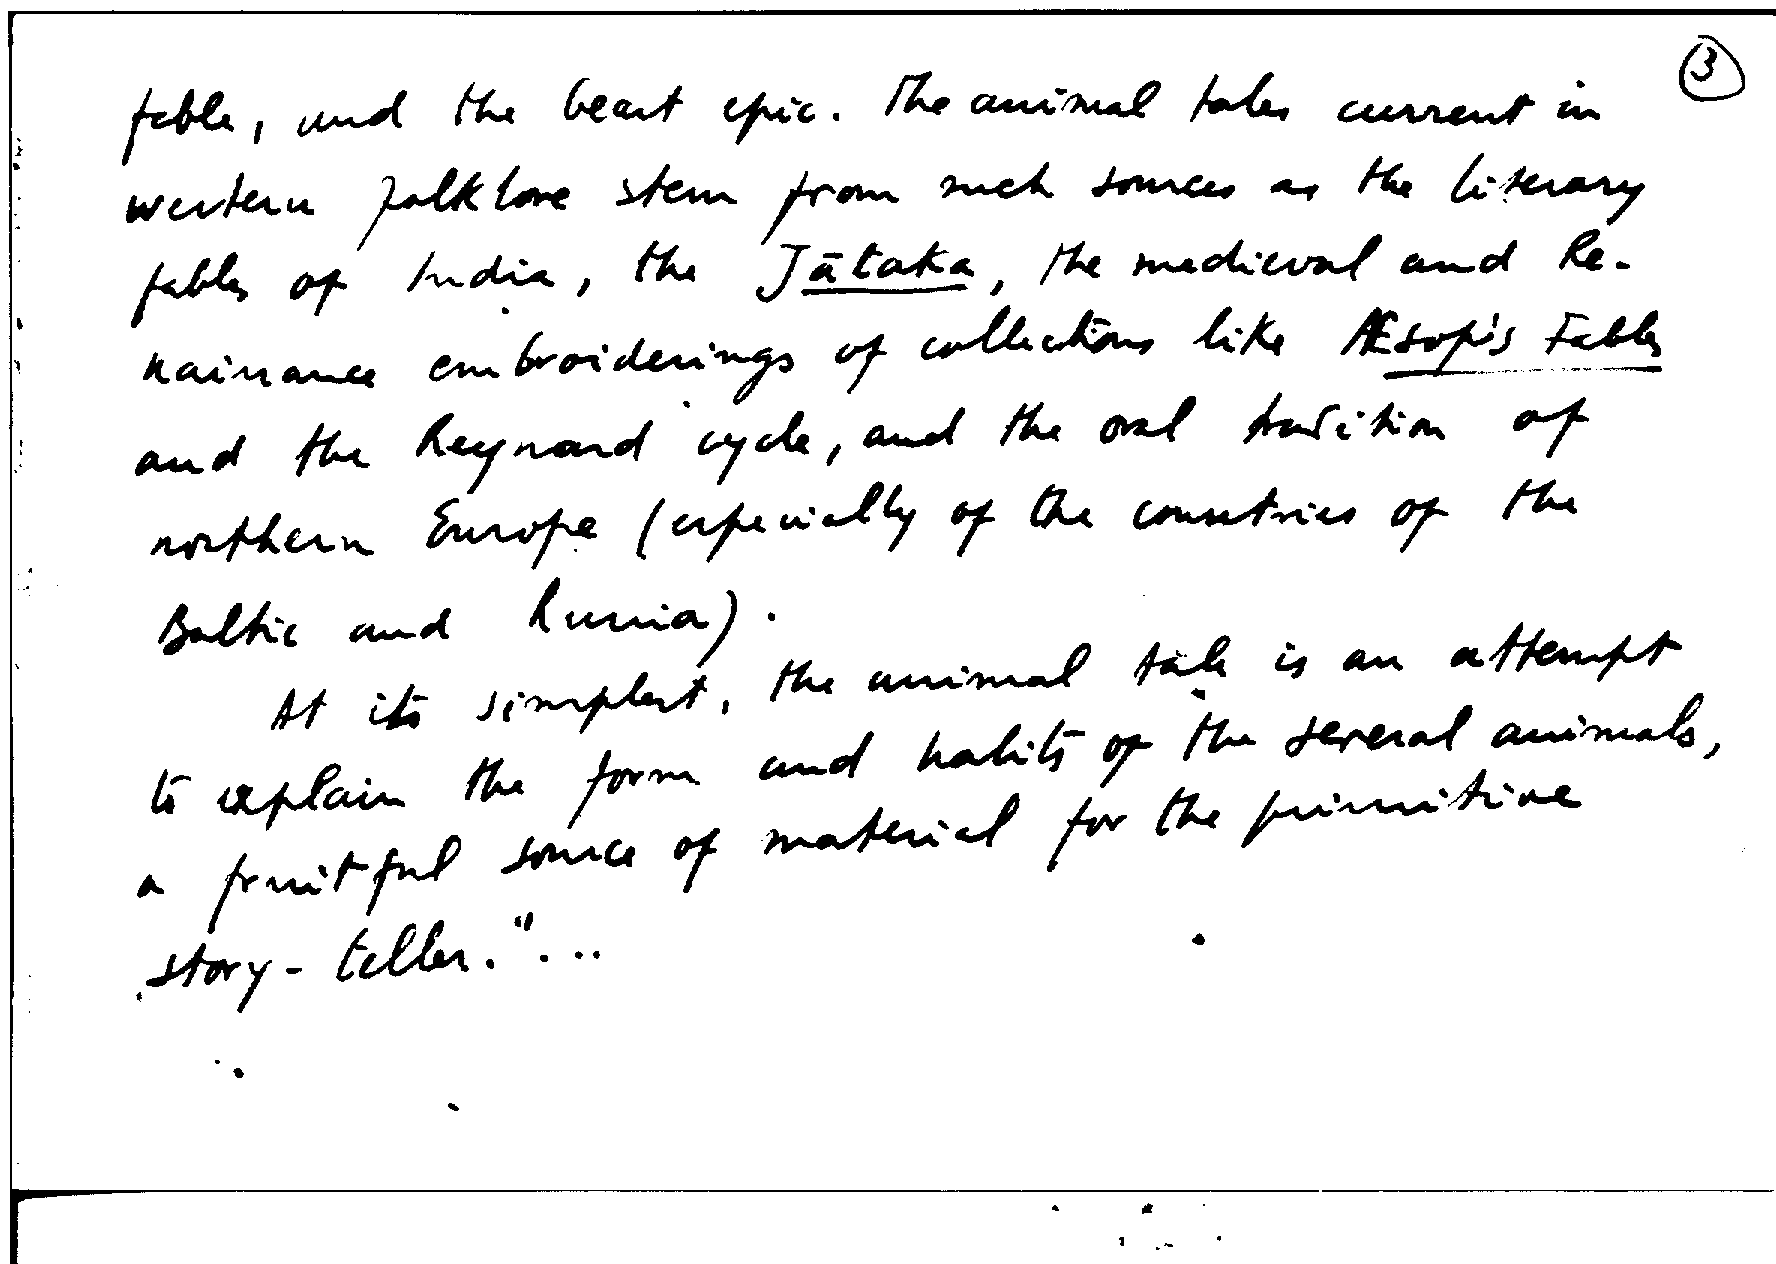 ③
fable, and the beast epic. The animal tales current in
western folklore stem from such sources as the literary
fables of India, the Jātaka, the medieval and Re-
naissance embroiderings of collections like Æsop's Fables
and the Reynard cycle, and the oral tradition of
northern Europe (especially of the countries of the
Baltic and Russia).
At its simplest, the animal tale is an attempt
to explain the form and habits of the several animals,
a fruitful source of material for the primitive
story-teller."...